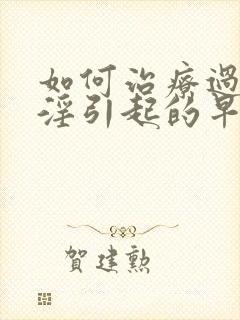 如何治療過
淫引起的早
賀建勲